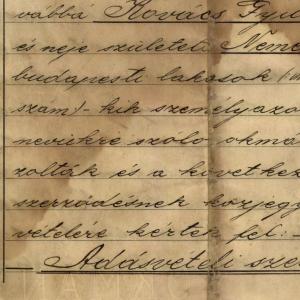 vábbá Kovács Gyu
és neje született Neme
budapesti lakosok
szám)- kik személyazo
nevükre szóló okma
zolták és a következ
szerződésnek közjegy
vételére kértek fel:-
Adásvételi sze